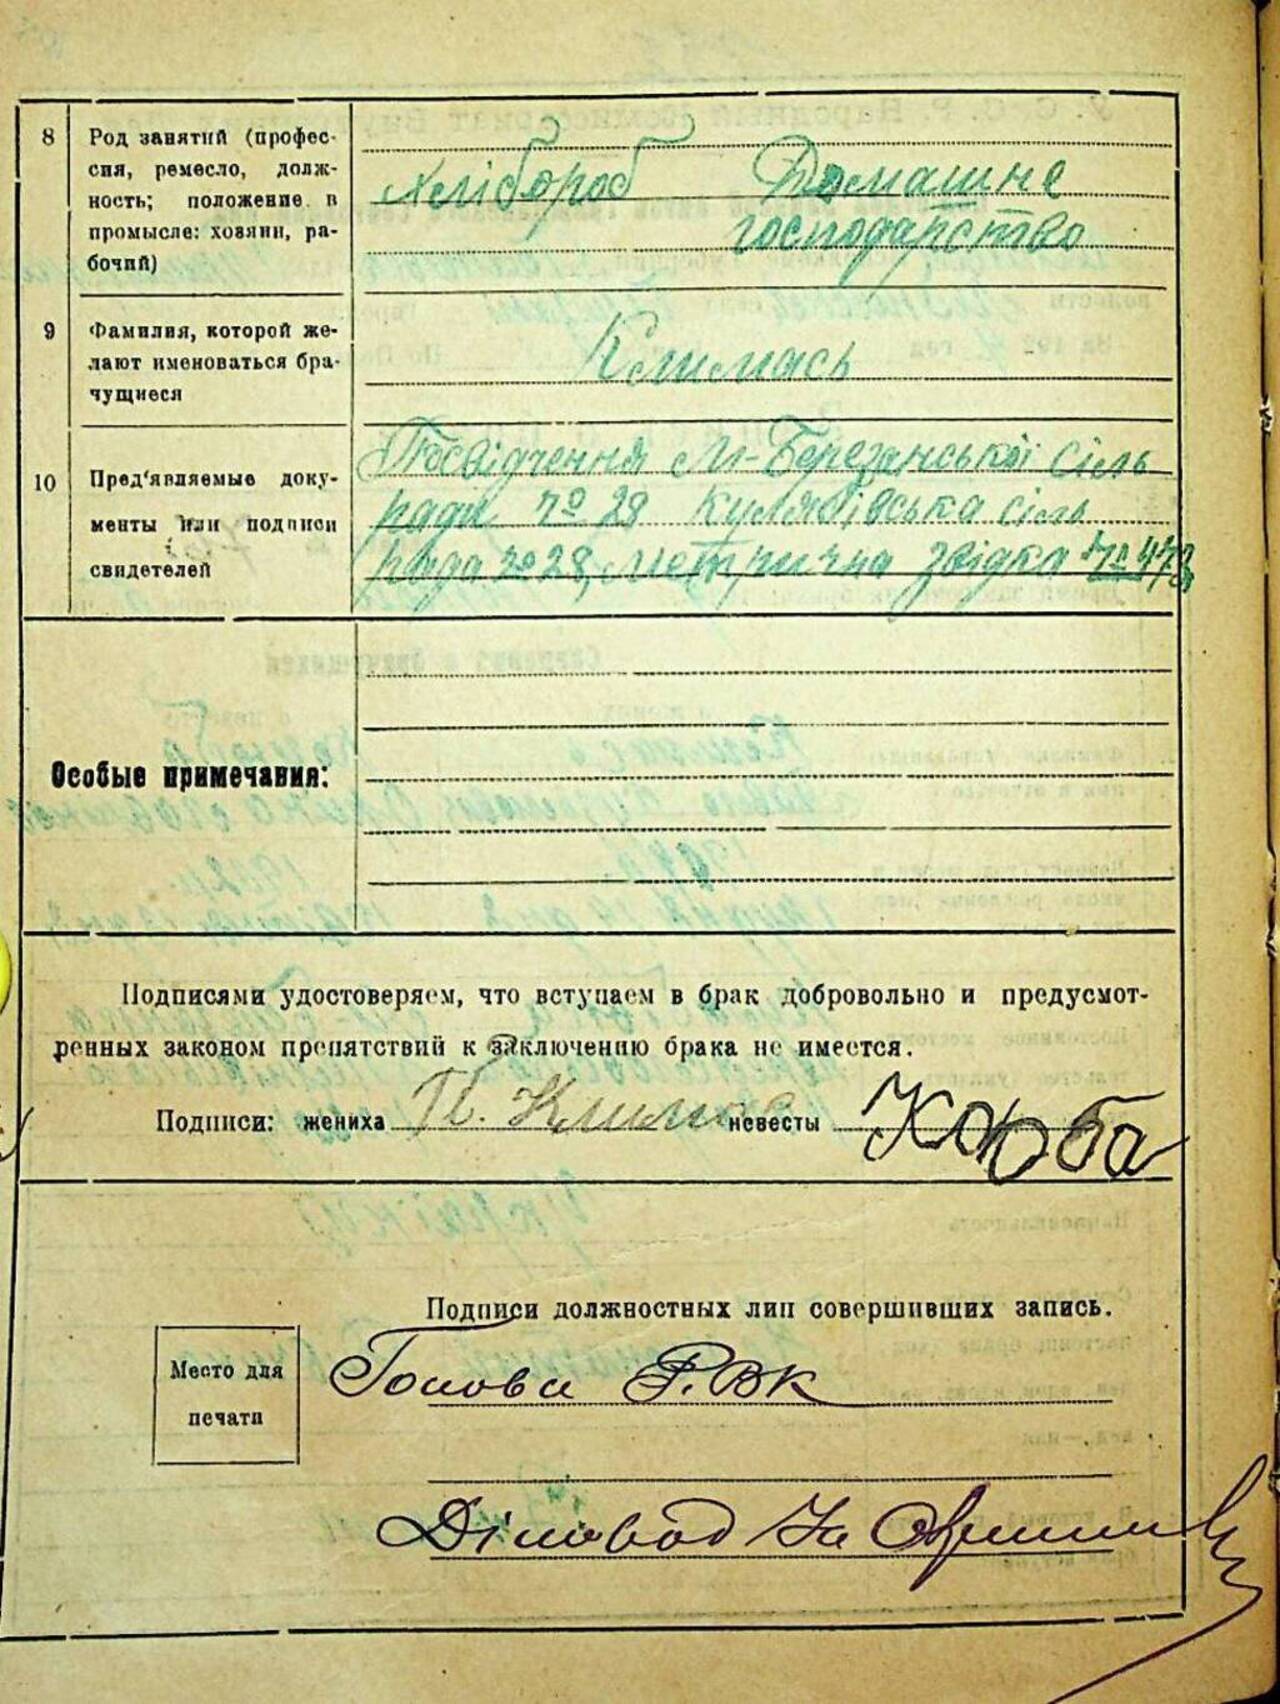 8 Род занятий (профес-
сия, ремесло, долж-
ность; положение в
промысле: хозяин, ра-
бочий)
Хлібороб Домашнє
господарство
9 Фамилия, которой же-
лают именоваться бра-
чущиеся
Климась
10 Пред'являемые доку-
менты или подписи
свидетелей
Посвідчення М-Березанської сіль
ради № 28 Кулябівська сіль
рада № 28, метрична звідка № 473
Особые примечания:
Подписями удостоверяем, что вступаем в брак добровольно и предусмот-
ренных законом препятствий к заключению брака не имеется.
Подписи: жениха П. Климас невесты Коюба
Подписи должностных лип совершивших запись.
Место для
печати
Голова РВК
Діловод За